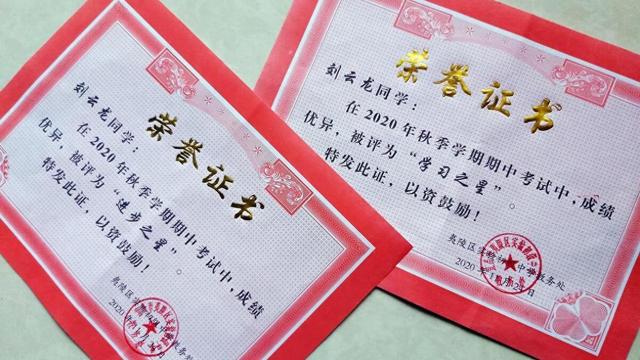 荣誉证书
刘云龙同学：
在2020年秋季学期期中考试中，成绩
优异，被评为“进步之星”。
特发此证，以资鼓励！
夷陵区实验初
2020
荣誉证书
刘云龙同学：
在2020年秋季学期期中考试中，成绩
优异，被评为“学习之星”。
特发此证，以资鼓励！
夷陵区实验初级中学教务处
2020年11月